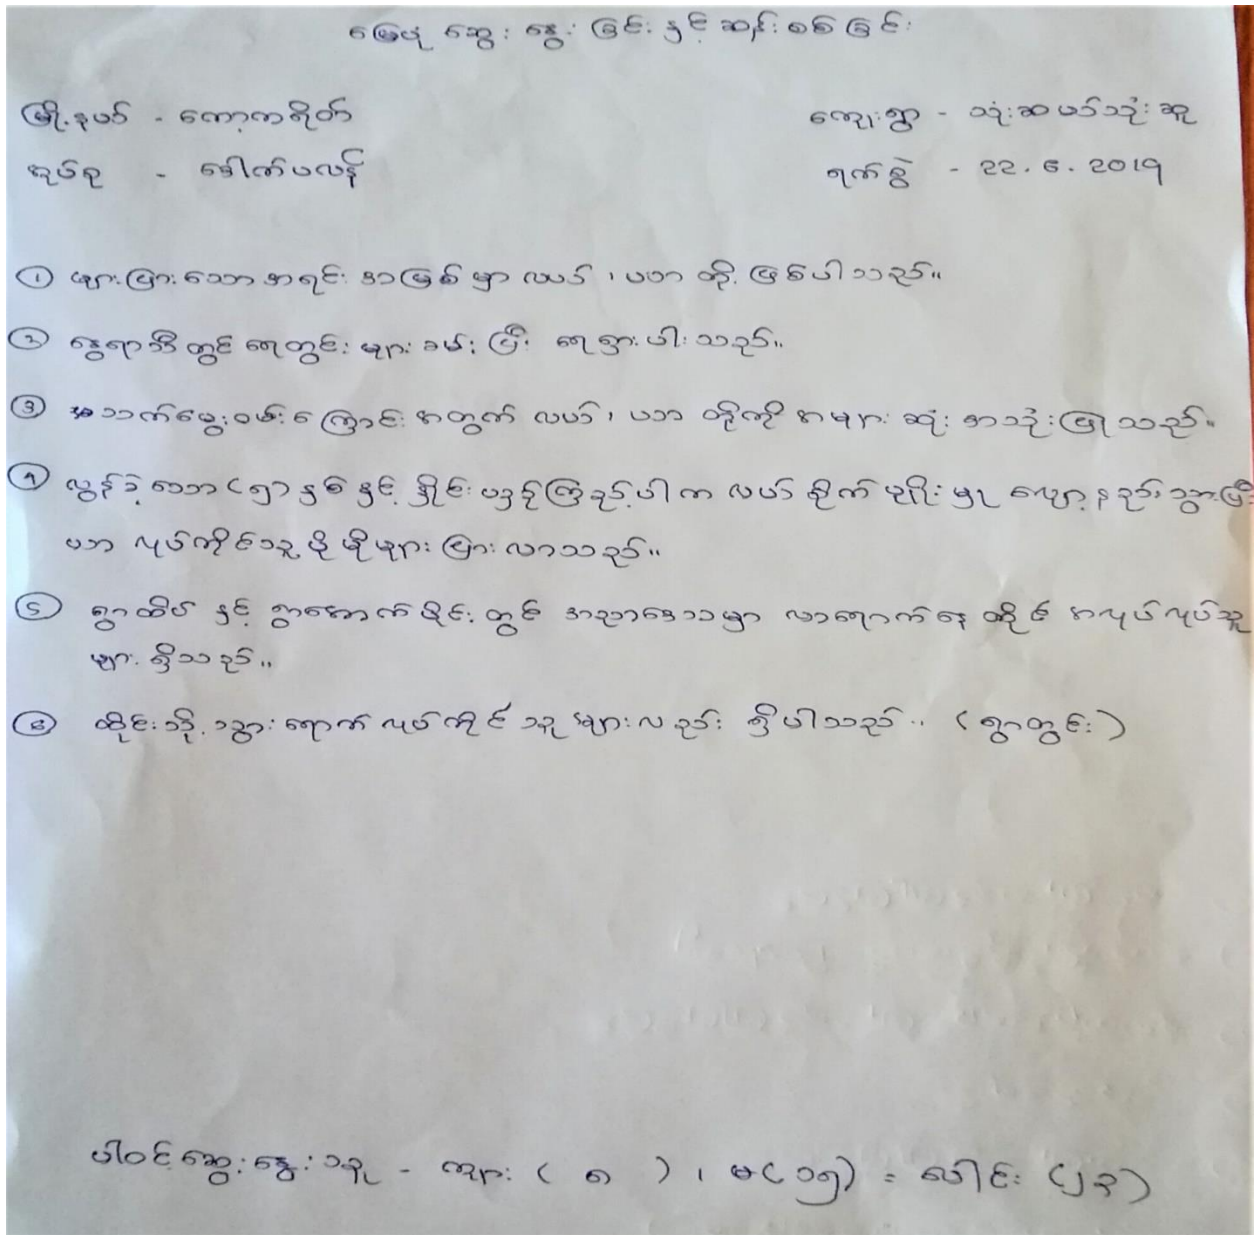 မြေပုံ ဆွေးနွေးခြင်းနှင့် ဆန်းစစ်ခြင်း
မြို့နယ် - ကော့ကရိတ် ကျေးရွာ - သုံးဆယ်သုံးဆူ
အုပ်စု - ခေါက်ပလန် ရက်စွဲ - 22.6.2019
① များပြားသော အရင်းအမြစ်မှာ လယ်၊ ပဘာ တို့ ဖြစ်ပါသည်။
② နွေရာသီတွင် ရေတွင်းများ ခမ်းပြီး ရေရှားပါးသည်။
③ အသက်မွေးဝမ်းကြောင်းအတွက် လယ်၊ ပဘာ တို့ကို အများဆုံး အသုံးပြုသည်။
④ လွန်ခဲ့သော (၅) နှစ်နှင့် နှိုင်းယှဉ်ကြည့်ပါက လယ်စိုက်ပျိုးမှု လျော့နည်းသွားပြီး
ပဘာ လုပ်ကိုင်သူ ပိုမိုများပြားလာသည်။
⑤ ရွာထိပ် နှင့် ရွာအောက်ပိုင်းတွင် အညာဒေသမှာ လာရောက်နေထိုင် အလုပ်လုပ်သူ
များ ရှိသည်။
⑥ ထိုင်းသို့ သွားရောက်လုပ်ကိုင်သူများလည်း ရှိပါသည်။ (ရွာတွင်း)
ပါဝင်ဆွေးနွေးသူ - ကျား ( ၈ ) ၊ မ (၁၅) = ပေါင်း (၂၃)